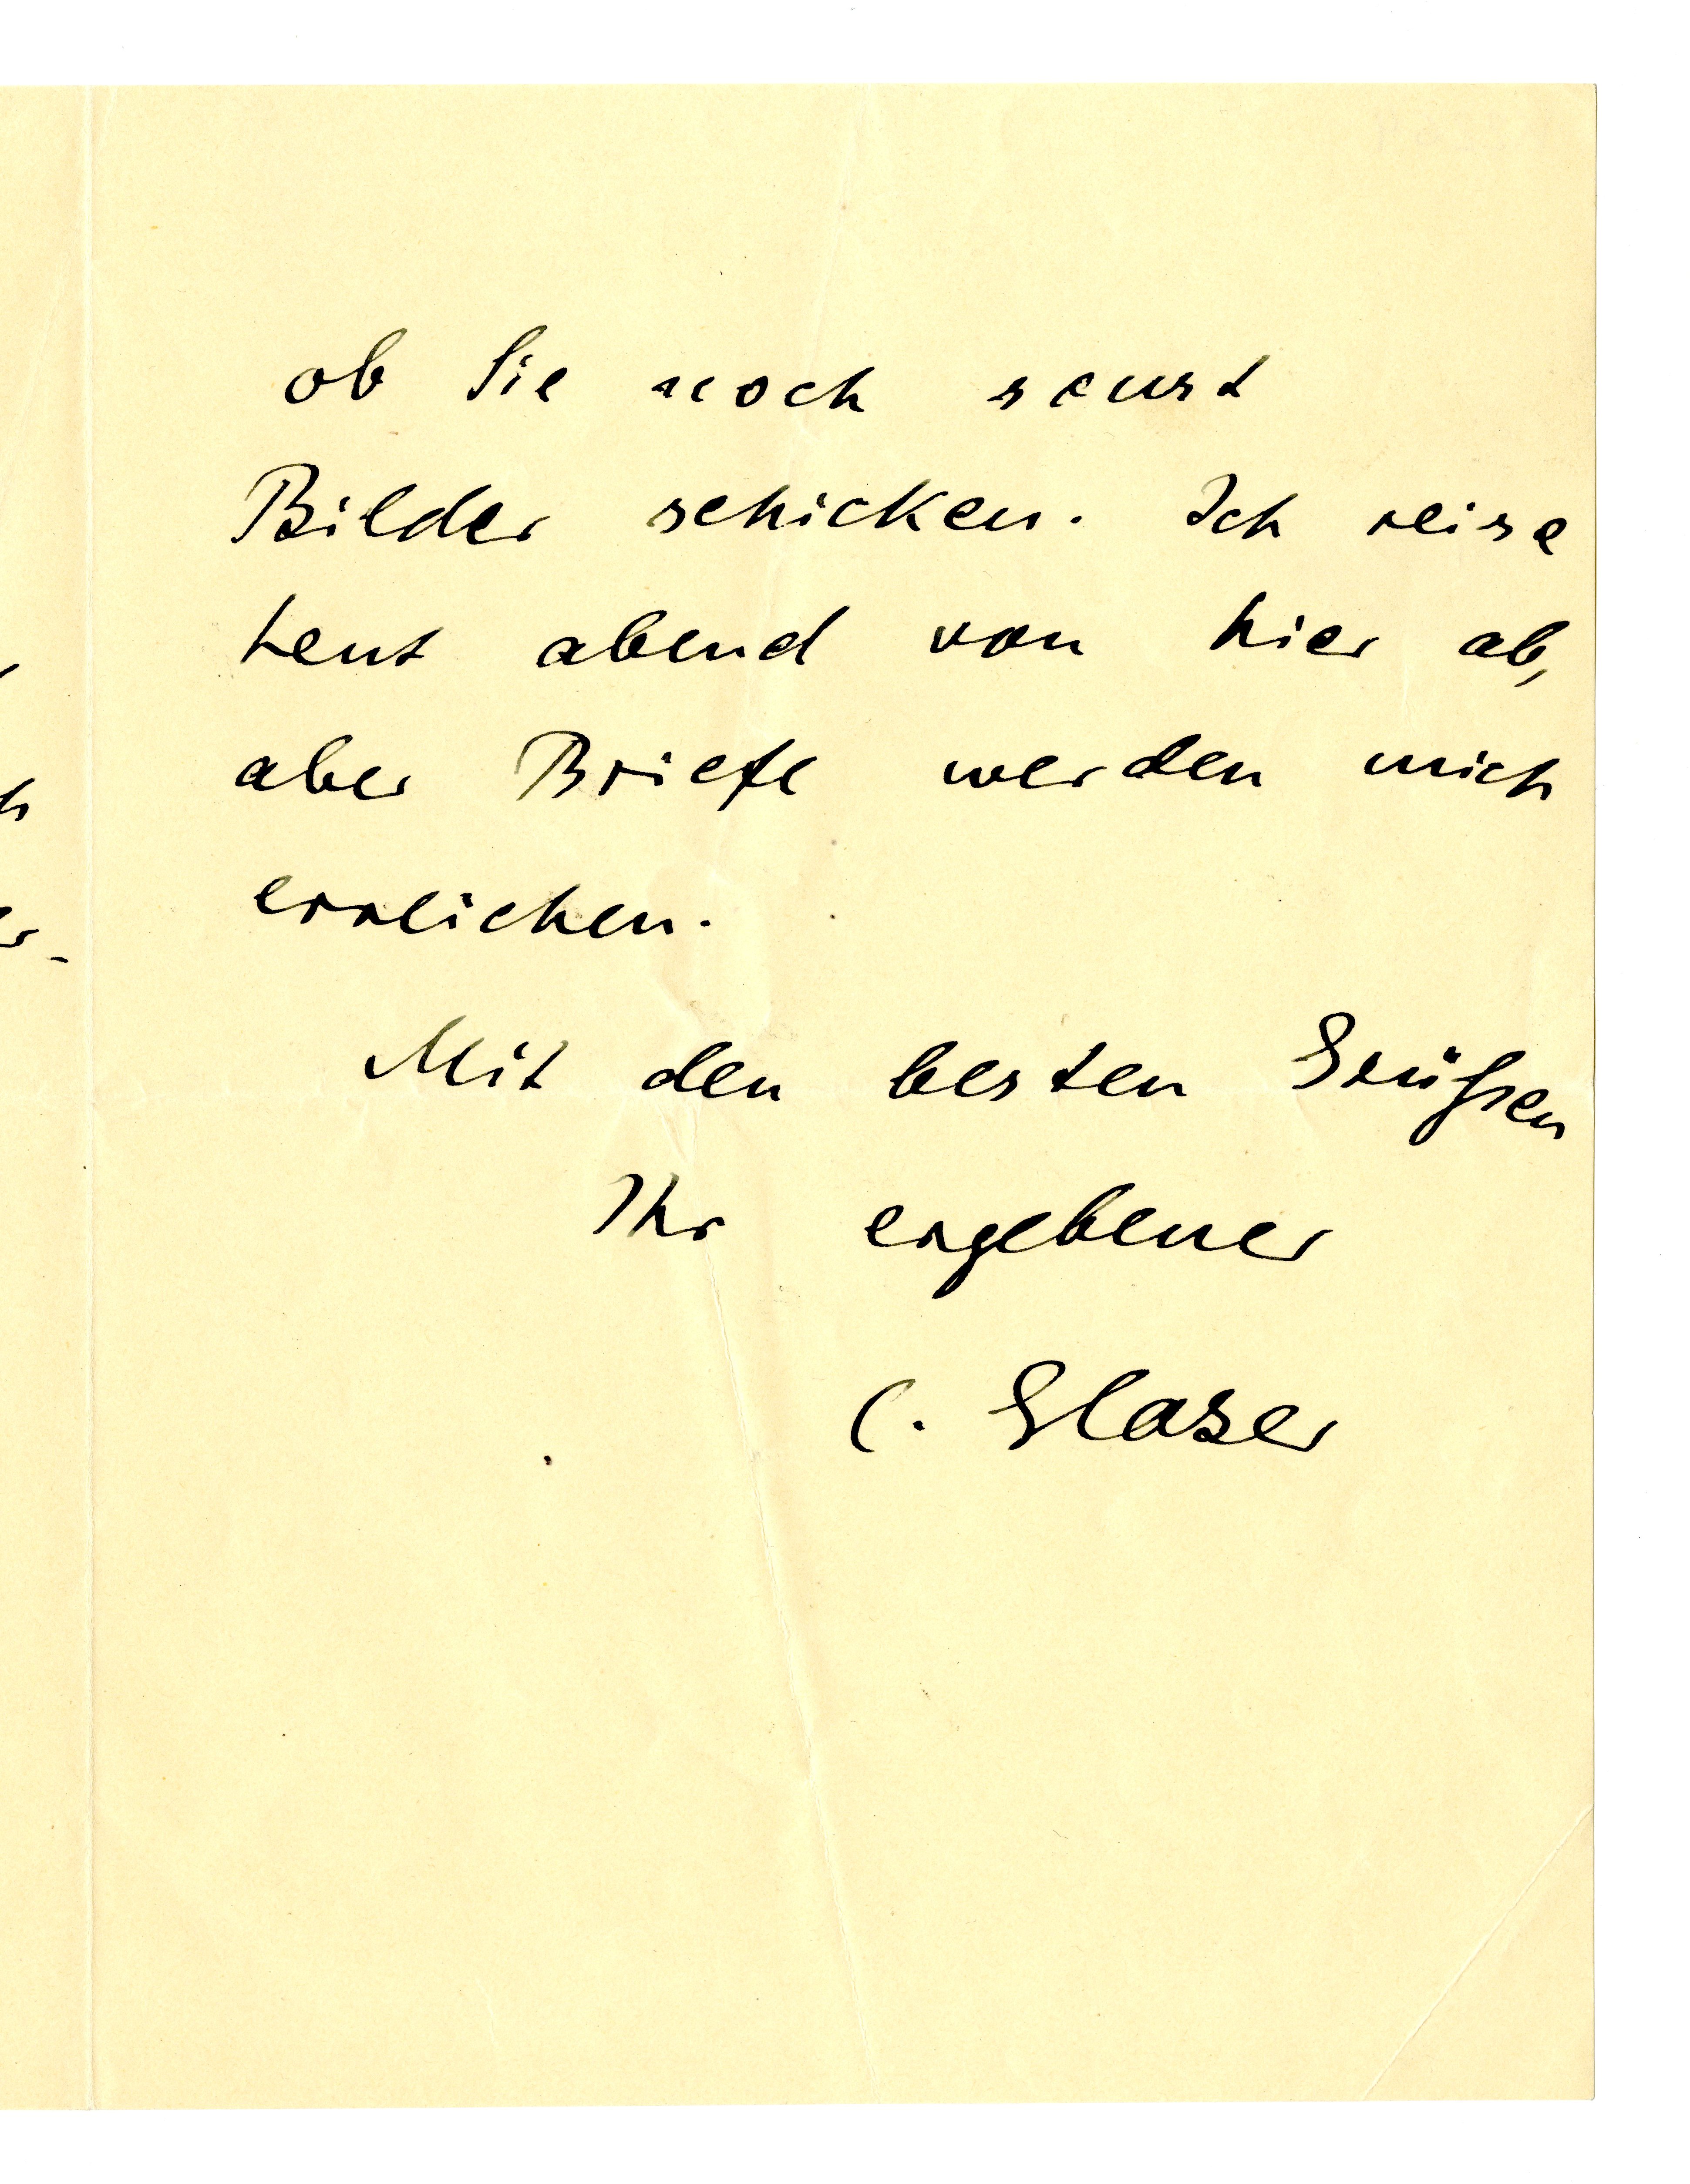 ob Sie noch sonst
Bilder schicken. Ich reise
heut abend von hier ab,
aber Briefe werden mich
erreichen.
Mit den besten Grüßen
Ihr ergebener
C. Glaser